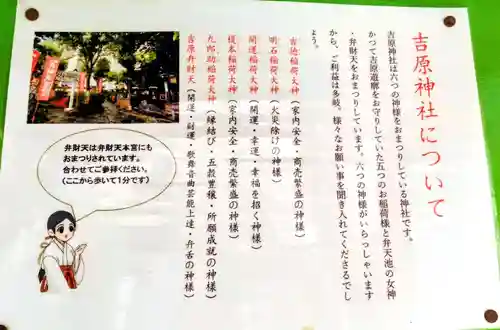 吉原神社について
吉原神社は六つの神様をおまつりしている神社です。
かつて吉原遊廓をお守りしていた五つのお稲荷様と弁天池の女神
・弁財天をおまつりしています。六つの神様がいらっしゃいます
から、ご利益は多岐。様々なお願い事を聞き入れてくださるでし
ょう。
吉徳稲荷大神(家内安全・商売繁盛の神様)
明石稲荷大神(火災除けの神様)
開運稲荷大神(開運・幸運・幸福を招く神様)
榎本稲荷大神(家内安全・商売繁盛の神様)
九郎助稲荷大神(縁結び・五穀豊穣・所願成就の神様)
吉原弁財天(開運・財運・歌舞音曲芸能上達・弁舌の神様)
弁財天は弁財天本宮にも
おまつりされています。
合わせてご参拝ください。
(ここから歩いて1分です)